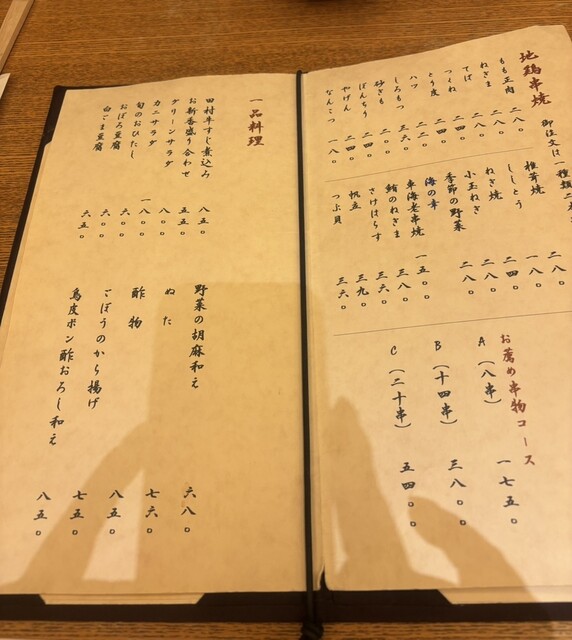 地鶏串焼
御注文は一種類二
もも正肉 二八〇
ねぎま 二八〇
てば 二八〇
つくね 二八〇
とり皮 二四〇
ハツ 二二〇
しろもつ 三六〇
砂ぎも 二四〇
ぼんちり 二四〇
やげん 二四〇
なんこつ 一八〇
椎茸焼 二八〇
ししとう 一八〇
ねぎ焼 二四〇
小玉ねぎ 二八〇
季節の野菜 二八〇
海の幸
車海老串焼 一五〇〇
鮪のねぎま 三八〇
さけはらす 三六〇
帆立 三九〇
つぶ貝 三六〇
お薦め串物コース
A（八串） 一七五〇
B（十四串） 三八〇〇
C（二十串） 五四〇〇
一品料理
田村牛すじ煮込み 八五〇
お新香盛り合わせ 五五〇
グリーンサラダ
カニサラダ
旬のおひたし 六〇〇
おぼろ豆腐 六〇〇
白ごま豆腐 六五〇
野菜の胡麻和え 六八〇
ぬた 七六〇
酢物 八五〇
ごぼうのから揚げ 七五〇
鳥皮ポン酢おろし和え 八五〇